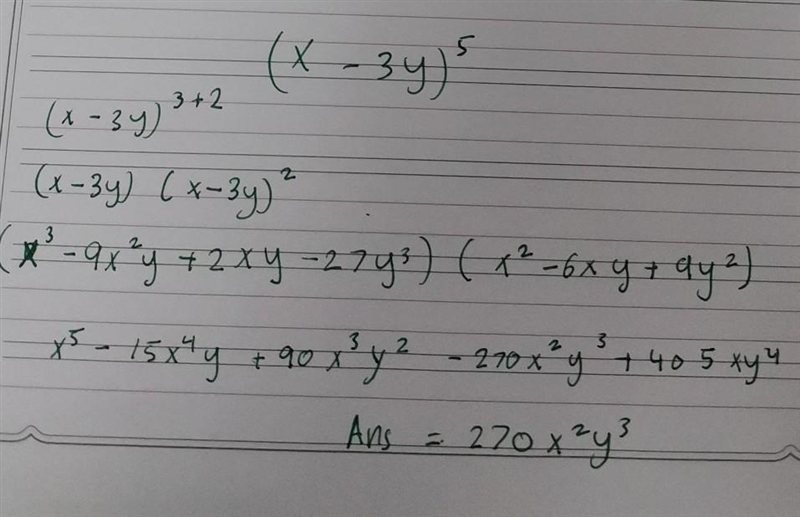 (x - 3y)⁵
(x - 3y)³⁺²
(x - 3y) (x - 3y)²
(x³ - 9x²y + 2xy - 27y³) (x² - 6xy + 9y²)
x⁵ - 15x⁴y + 90x³y² - 270x²y³ + 405xy⁴
Ans = 270x²y³